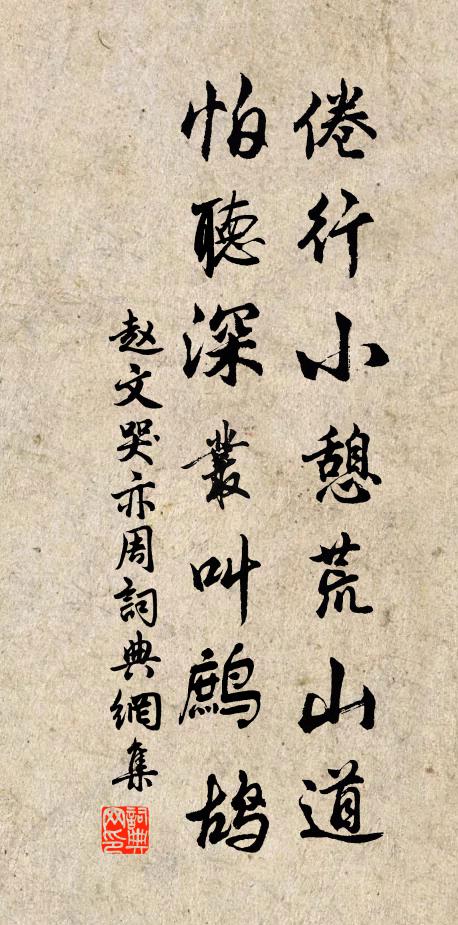 倦行小憩荒山道
怕聽深叢叫鷓鴣
赵文哭亦周詞典網集
詞典网印